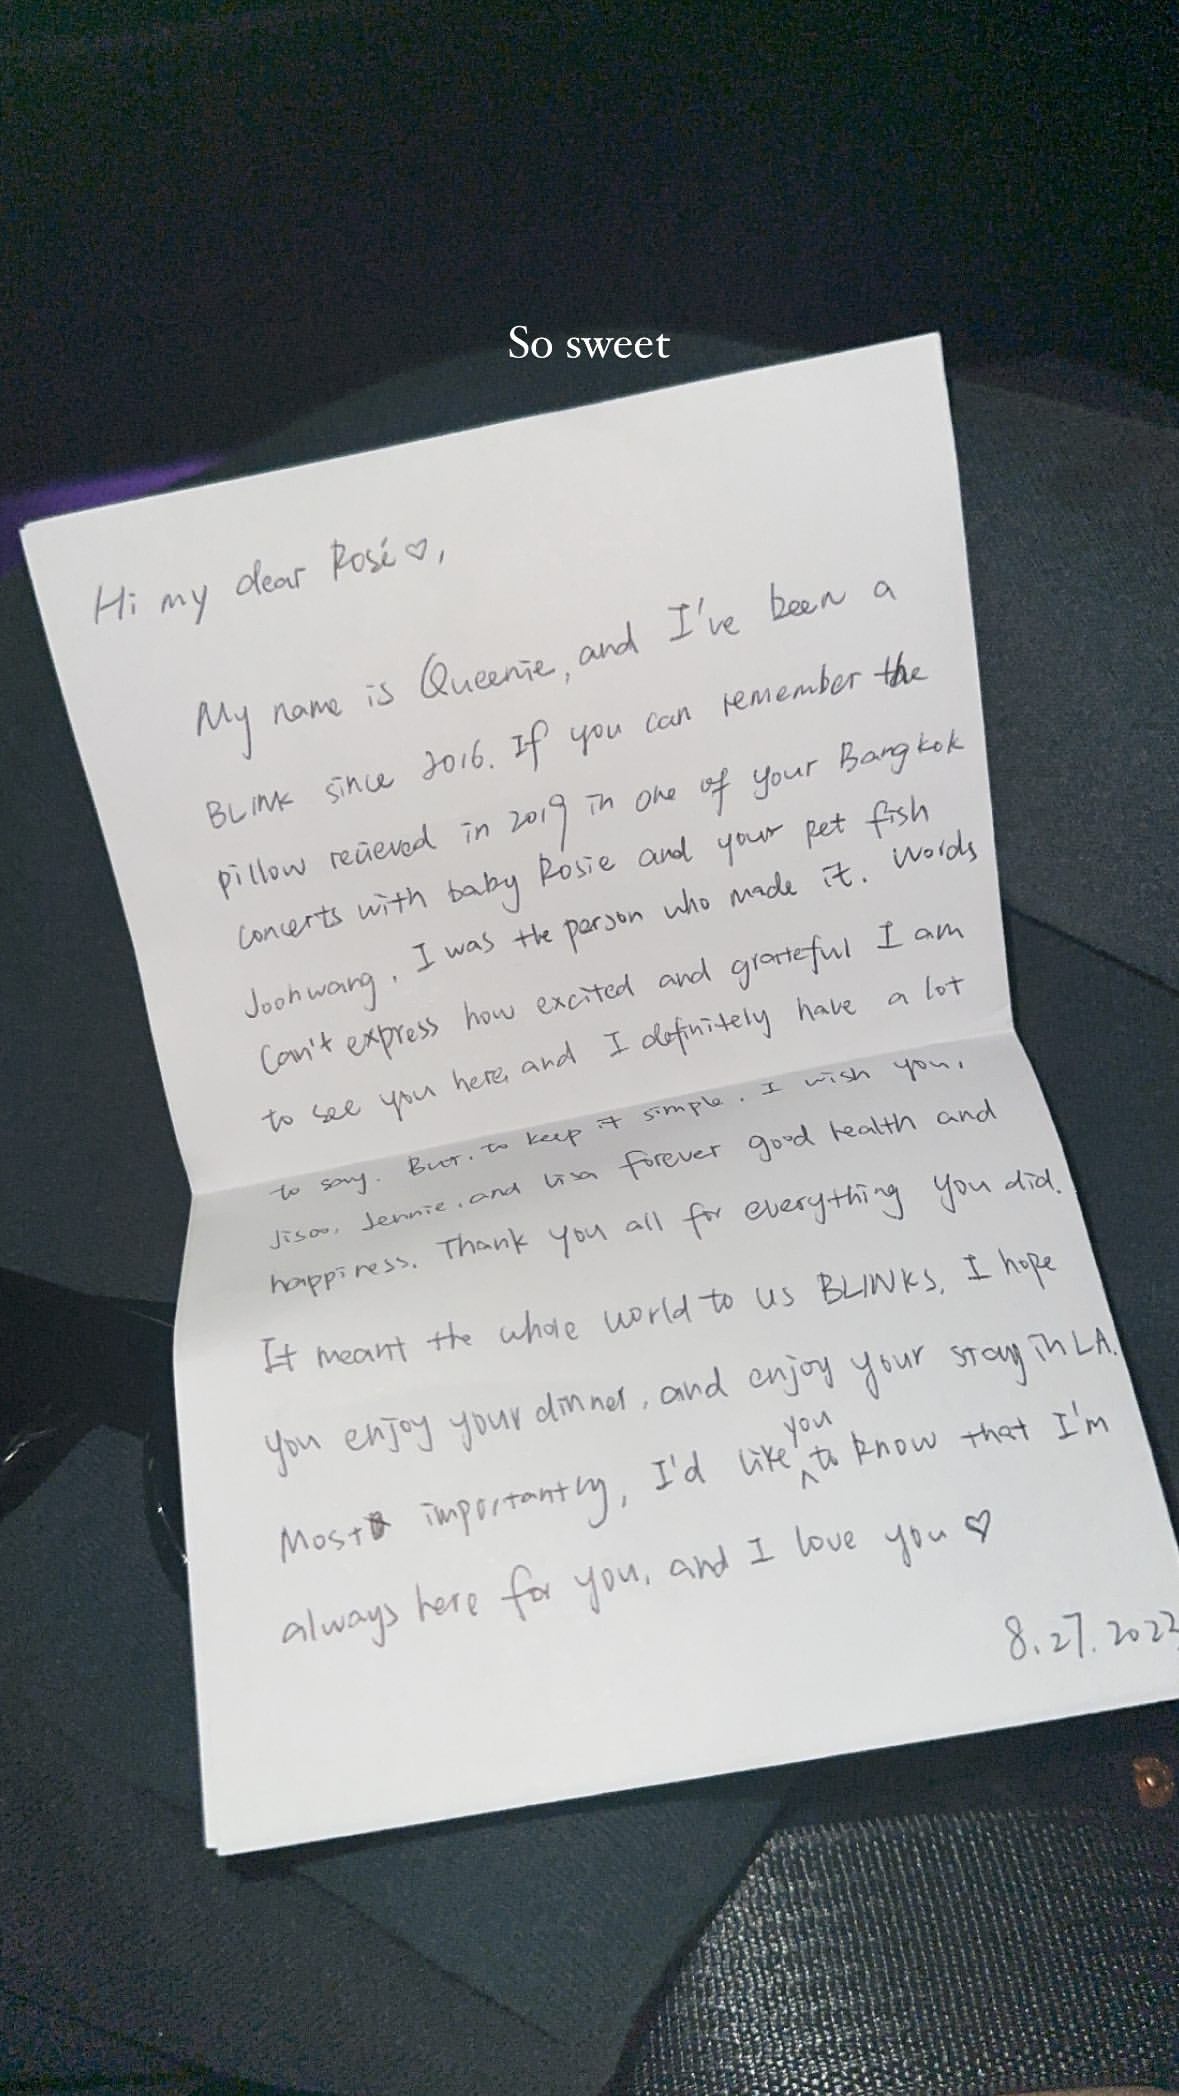 So sweet
Hi my dear Rosé ♡,
My name is Queenie, and I've been a
BLINK since 2016. If you can remember the
pillow recieved in 2019 in one of your Bangkok
concerts with baby Rosie and your pet fish
Joohwang, I was the person who made it. Words
Can't express how excited and grateful I am
to see you here, and I definitely have a lot
to say. But, to keep it simple, I wish you,
Jisoo, Jennie, and Lisa forever good health and
happiness. Thank you all for everything you did.
It meant the whole world to us BLINKS. I hope
you enjoy your dinner, and enjoy your stay in LA.
Most importantly, I'd like you to know that I'm
always here for you, and I love you ♡
8.27.2023